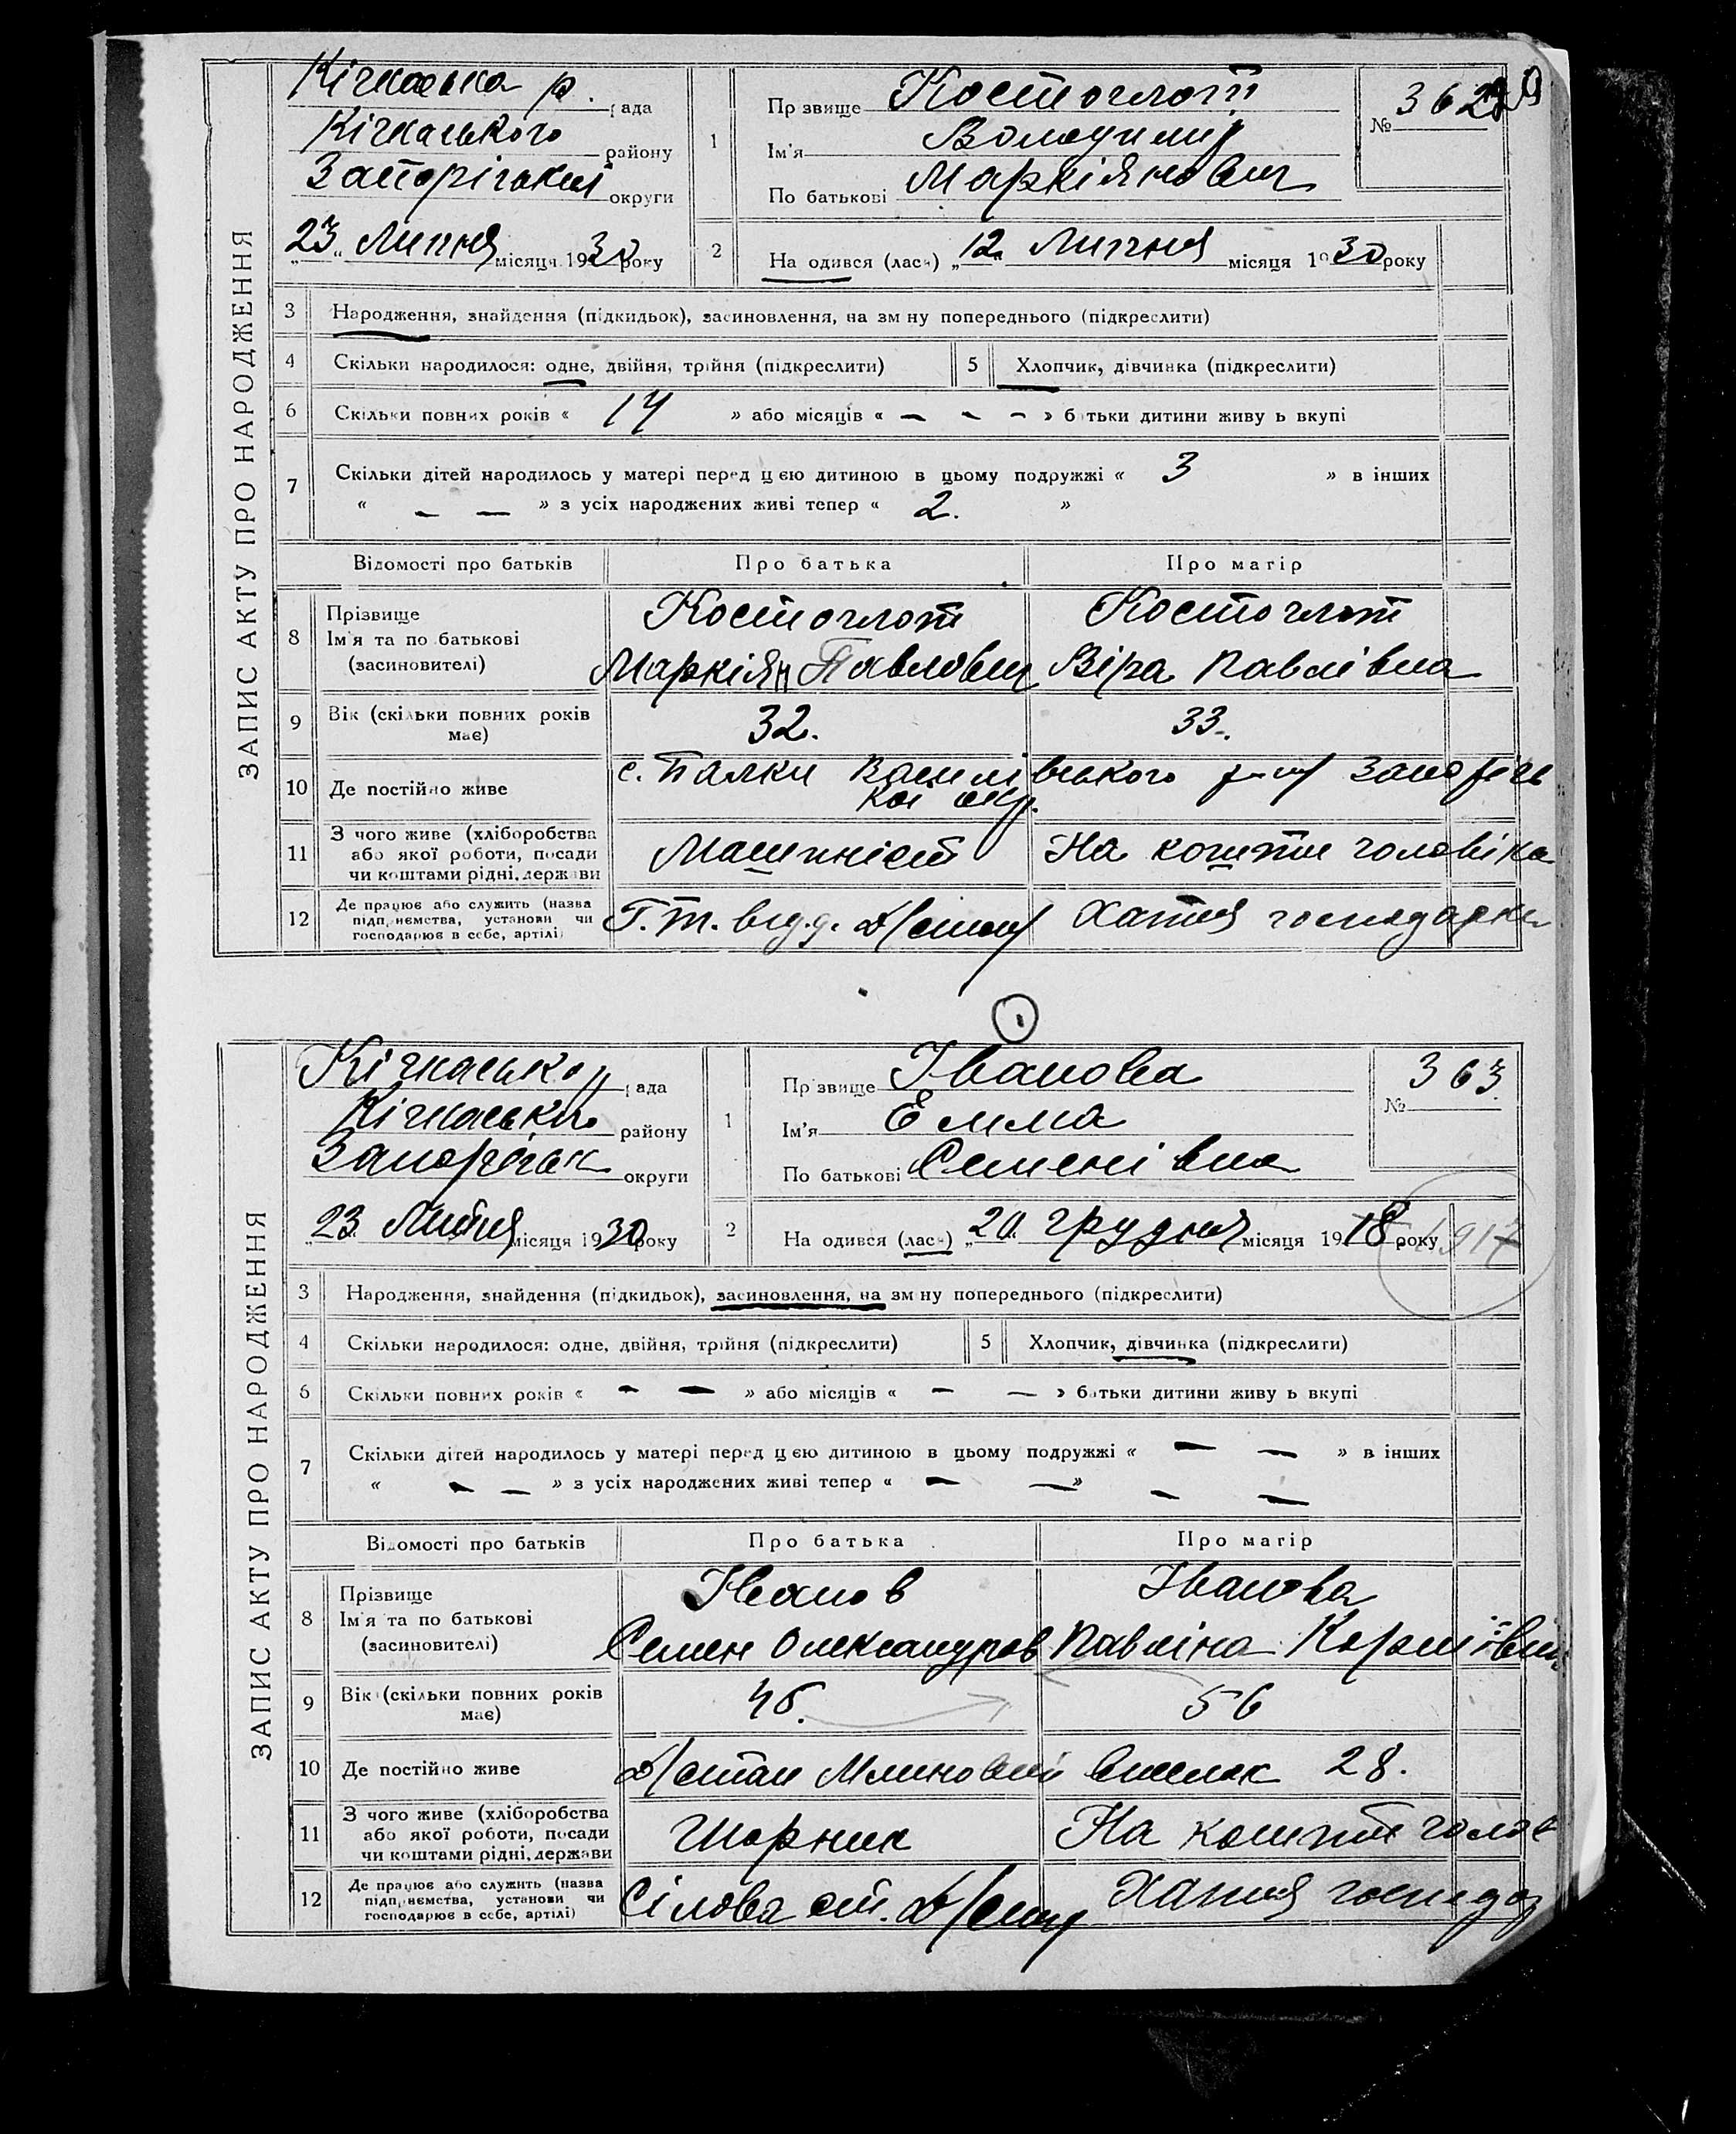 ЗАПИС АКТУ ПРО НАРОДЖЕННЯ
Кічкаська р. рада
Кічкаського району
Запорізької округи
„23“ Липня місяця 1930 року
1 Прізвище Костоглот
Ім'я Володимир
По батькові Маркіянович
№ 362
2 На одився (лась) „12“ Липня місяця 1930 року
3 Народження, знайдення (підкидьок), засиновлення, на зм ну попереднього (підкреслити)
4 Скільки народилося: одне, двійня, трійня (підкреслити) 5 Хлопчик, дівчинка (підкреслити)
6 Скільки повних років « 14 » або місяців « – – – » батьки дитини живу ь вкупі
7 Скільки дітей народилось у матері перед цією дитиною в цьому подружжі « 3 » в інших
« – – » з усіх народжених живі тепер « 2. »
Відомості про батьків Про батька Про матір
8 Прізвище Ім'я та по батькові (засиновителі)
Костоглот Костоглот
Маркіян Павлович Віра Павлівна
9 Вік (скільки повних років має) 32. 33.
10 Де постійно живе с. Балки Василівського Запорізь
кої окр.
11 З чого живе (хліборобства або якої роботи, посади чи коштами рідні, держави
Машиніст На кошти чоловіка
12 Де працює або служить (назва підприємства, установи чи господарює в себе, артілі)
Хатня господарка
ЗАПИС АКТУ ПРО НАРОДЖЕННЯ
Кічкаська р. рада
Кічкаськ району
Запорізьк округи
„23“ Липня місяця 1930 року
1 Прізвище Іванова
Ім'я Емма
По батькові Семенівна
№ 363
2 На одився (лась) „20“ грудня місяця 1918 року 1917
3 Народження, знайдення (підкидьок), засиновлення, на зм ну попереднього (підкреслити)
4 Скільки народилося: одне, двійня, трійня (підкреслити) 5 Хлопчик, дівчинка (підкреслити)
6 Скільки повних років « – – » або місяців « – – » батьки дитини живу ь вкупі
7 Скільки дітей народилось у матері перед цією дитиною в цьому подружжі « – – » в інших
« – – » з усіх народжених живі тепер « – – » – –
Відомості про батьків Про батька Про матір
8 Прізвище Ім'я та по батькові (засиновителі)
Іванов Іванова
Семен Олександров Павліна
9 Вік (скільки повних років має) 46. 56
10 Де постійно живе Д/стан Млиновий виселок 28.
11 З чого живе (хліборобства або якої роботи, посади чи коштами рідні, держави
Шорник На кошти голов
12 Де працює або служить (назва підприємства, установи чи господарює в себе, артілі)
Сілова ст. Хатня господар